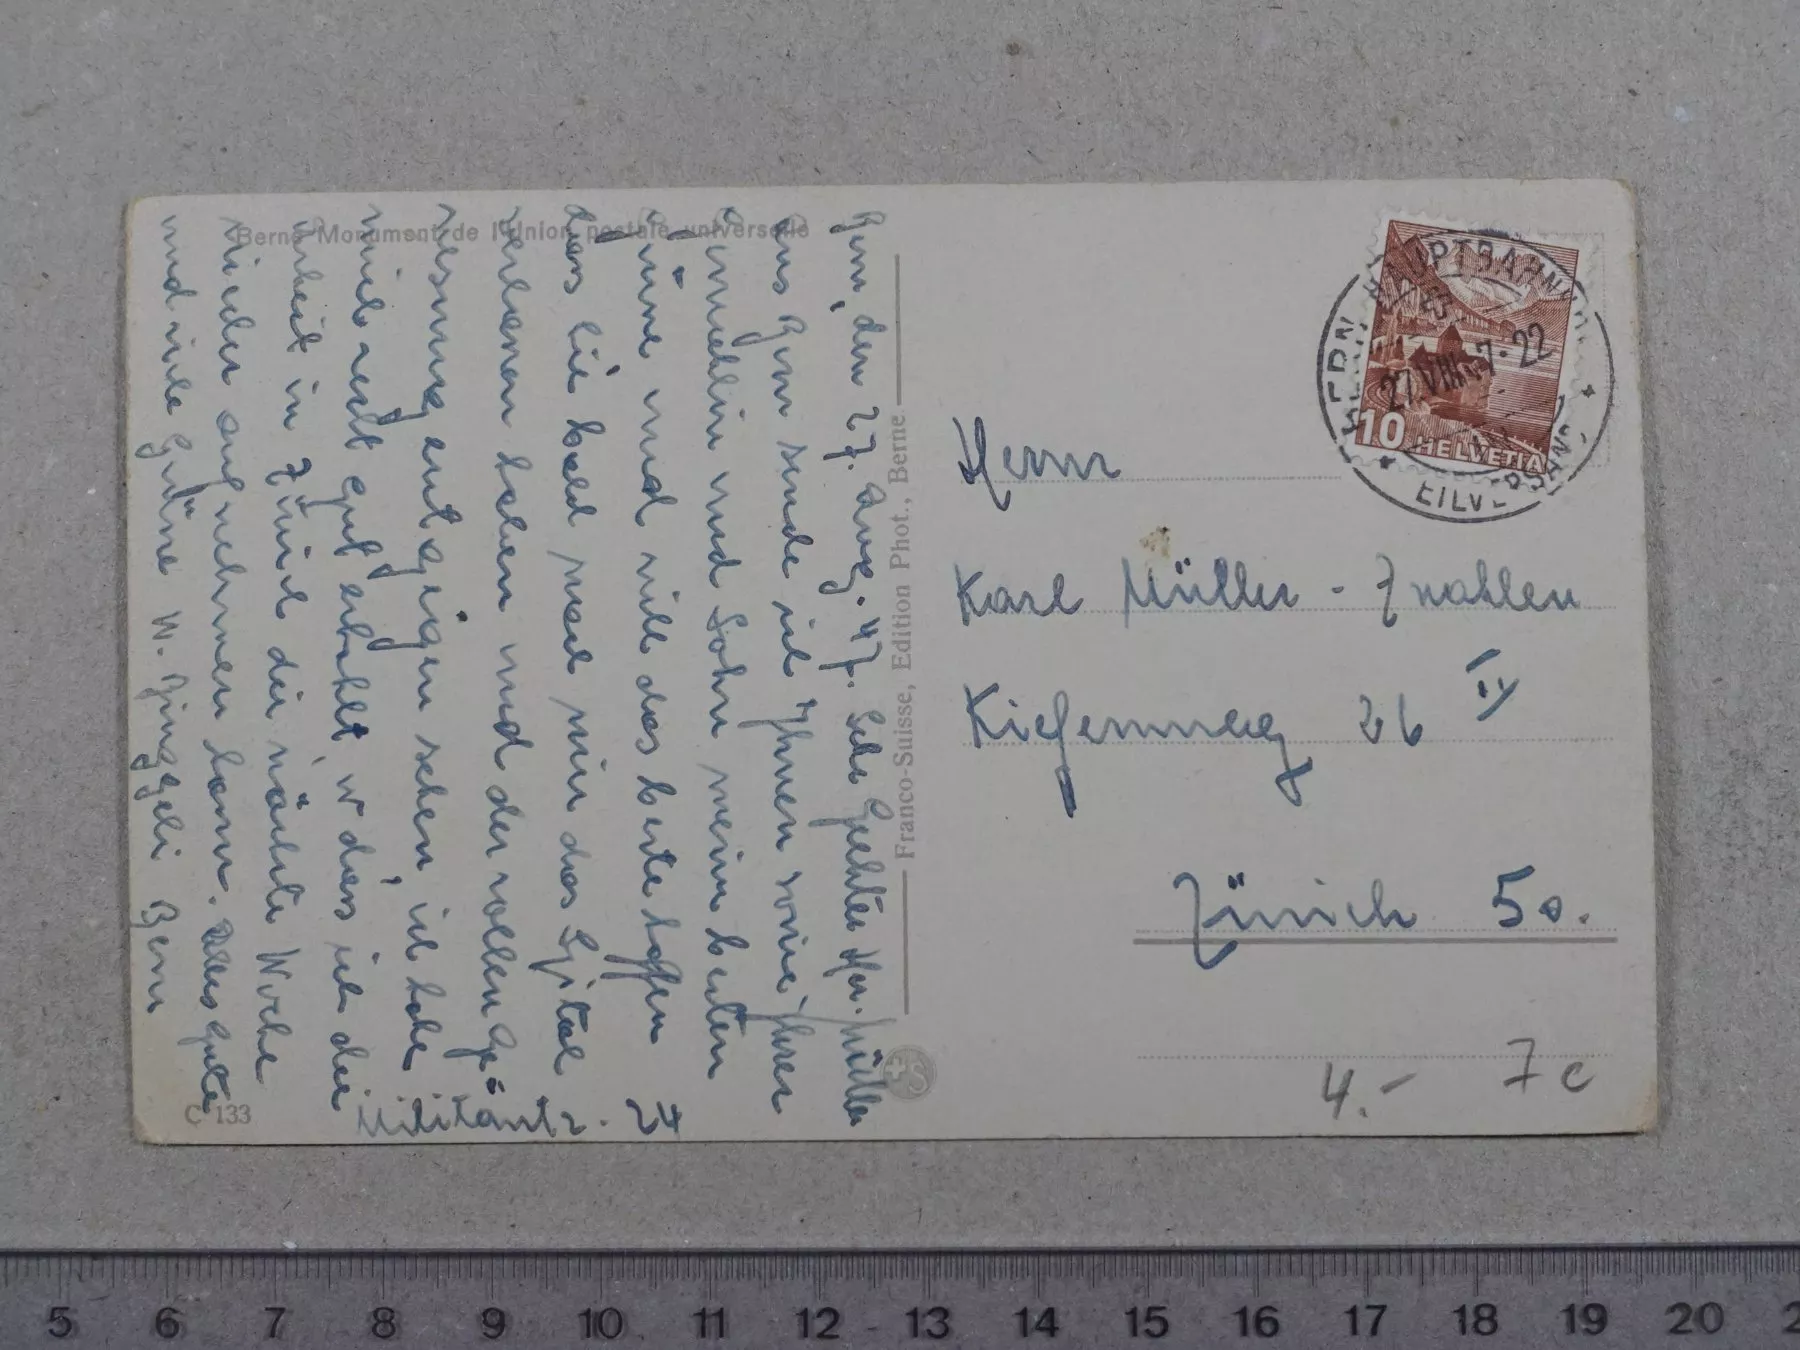 Berne Monument de l'Union postale universelle
Bern, den 27. Aug. 47. Sehr Geehrter Her. Müller
aus Bern sende ich Ihnen sowie Ihrer
Gemahlin und Sohn meine besten
Grüse und will das beste hoffen
das Sie bald mal nun das Spital
verlassen haben und der vollen Ge=
nesung entgegen sehen ich habe
mich recht gut erholt u das ich die
Arbeit in Zürich die nächste Woche
wieder aufnehmen kann. Alles gute
und viele Grüse W. Binggeli Bern
C 133
Franco-Suisse, Edition Phot., Berne
S
BERN HAUPTBAHNHOF
27.VIII.47-22
EILVERSAND
10
HELVETIA
Herrn
Karl Müller-Zwahlen
Kiefernweg 26 II
Zürich 50.
4.- 7c